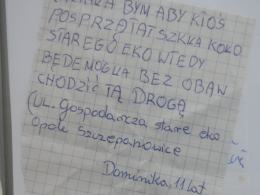 BYM ABY KTOŚ
POSPRZĄTAŁ SZKŁA KOŁO
STAREGO EKO WTEDY
BEDE MOGŁA BEZ OBAW
CHODZIĆ TĄ DROGĄ
(UL. Gospodarcza stare eko
Opole Szczepanowice
Dominika, 11 lat